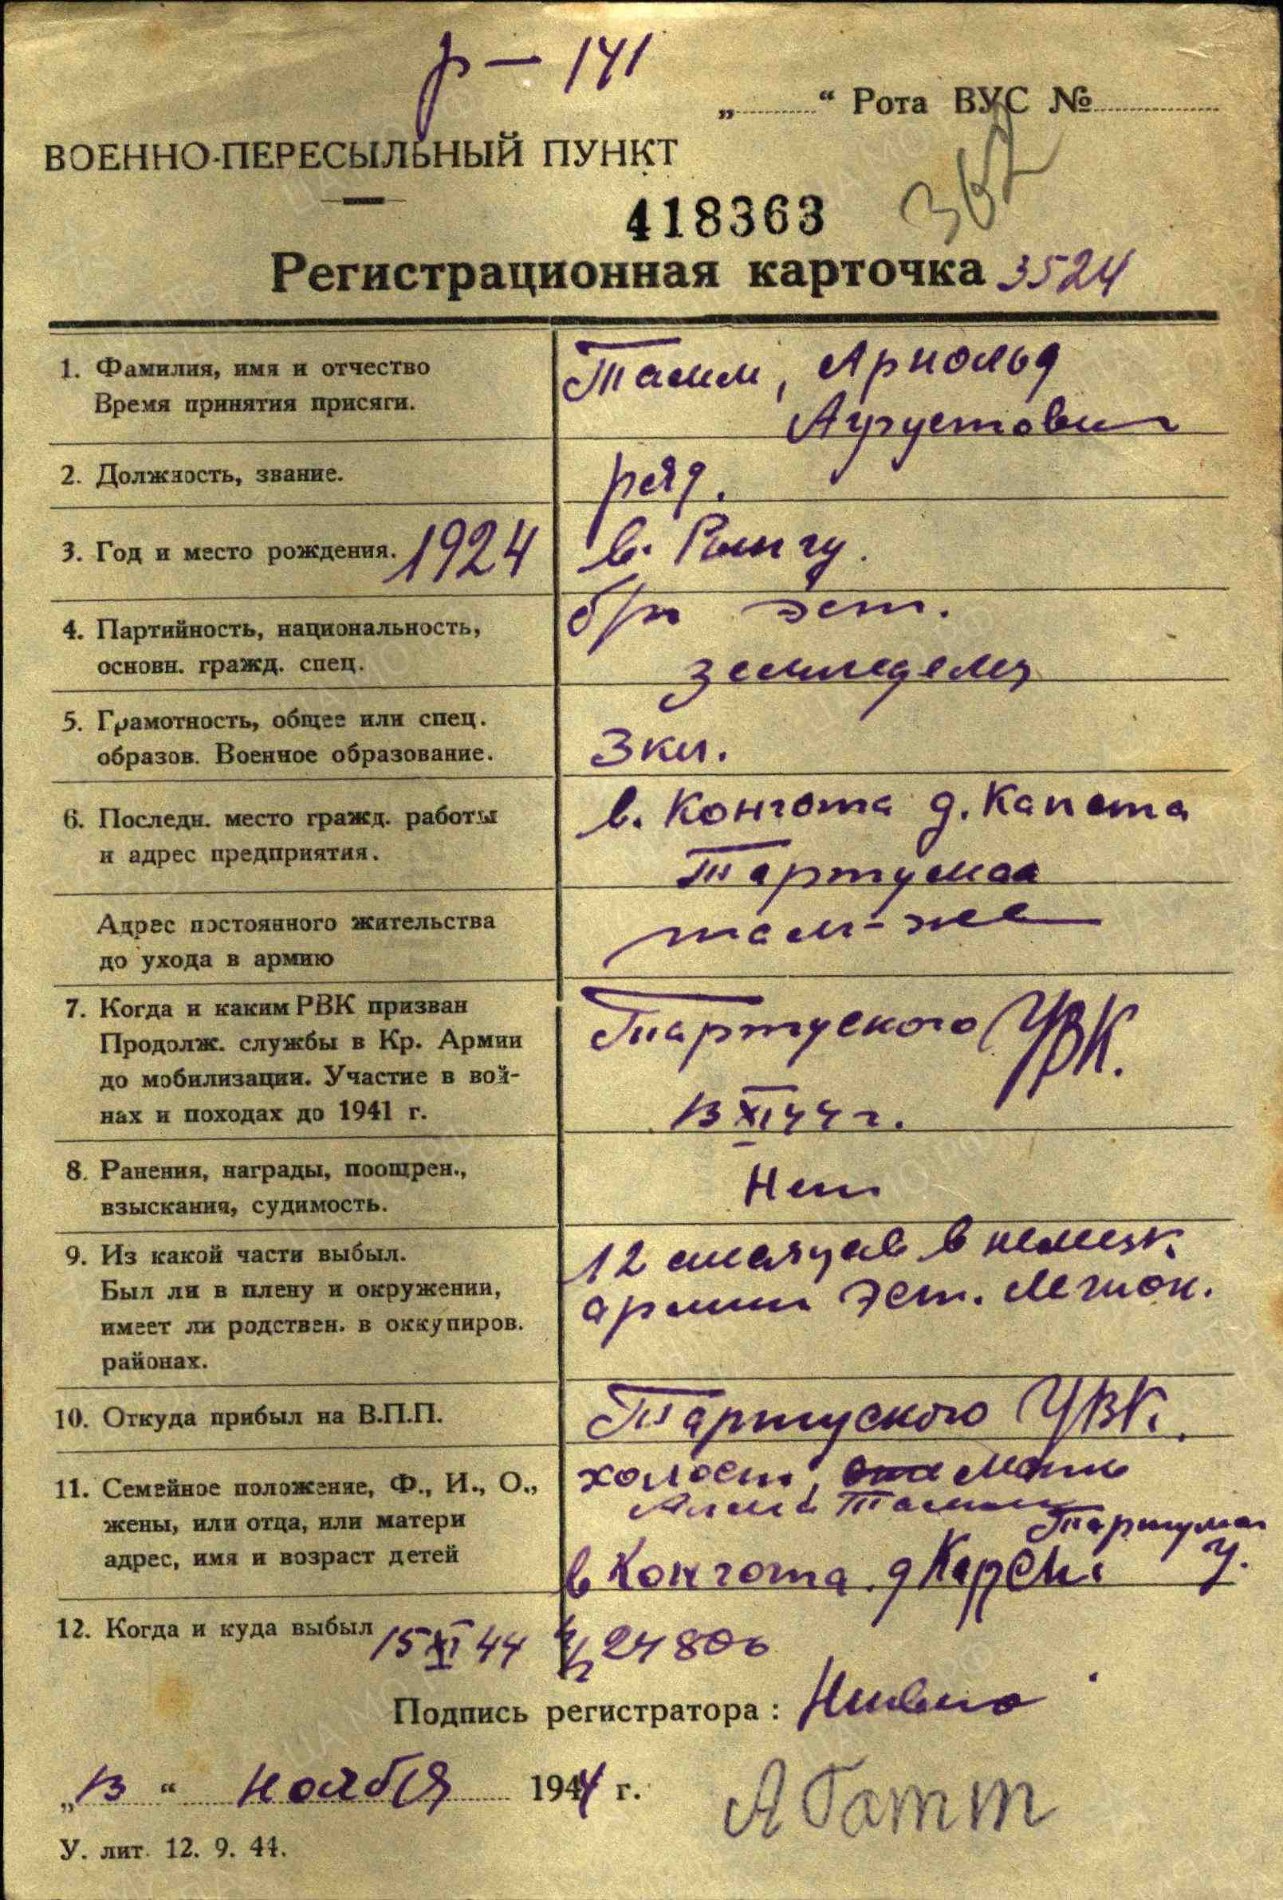 р — 141
„ “ Рота ВУС №
ВОЕННО-ПЕРЕСЫЛЬНЫЙ ПУНКТ
418363
Регистрационная карточка 3524
1. Фамилия, имя и отчество
Время принятия присяги.
Тамм, Арнольд
Аугустович
2. Должность, звание.
ряд.
3. Год и место рождения. 1924
в. Рынгу.
4. Партийность, национальность,
основн. гражд. спец.
б/п эст.
земледел
5. Грамотность, общее или спец.
образов. Военное образование.
3 кл.
6. Последн. место гражд. работы
и адрес предприятия.
в. Конгота д. Капста
Тартумаа
Адрес постоянного жительства
до ухода в армию
там-же
7. Когда и каким РВК призван
Продолж. службы в Кр. Армии
до мобилизации. Участие в вой-
нах и походах до 1941 г.
Тартуского УВК.
13 XI 44 г.
8. Ранения, награды, поощрен.,
взыскания, судимость.
Нет
9. Из какой части выбыл.
Был ли в плену и окружении,
имеет ли родствен. в оккупиров.
районах.
12 месяцев в немецк.
армии эст. легион.
10. Откуда прибыл на В.П.П.
Тартуского УВК.
11. Семейное положение, Ф., И., О.,
жены, или отца, или матери
адрес, имя и возраст детей
холост, мать
Тамм
Тартумаа
в Конгота д У.
12. Когда и куда выбыл 15 XI 44
24806
Подпись регистратора:
„13“ ноября 1944 г.
У. лит. 12. 9. 44.